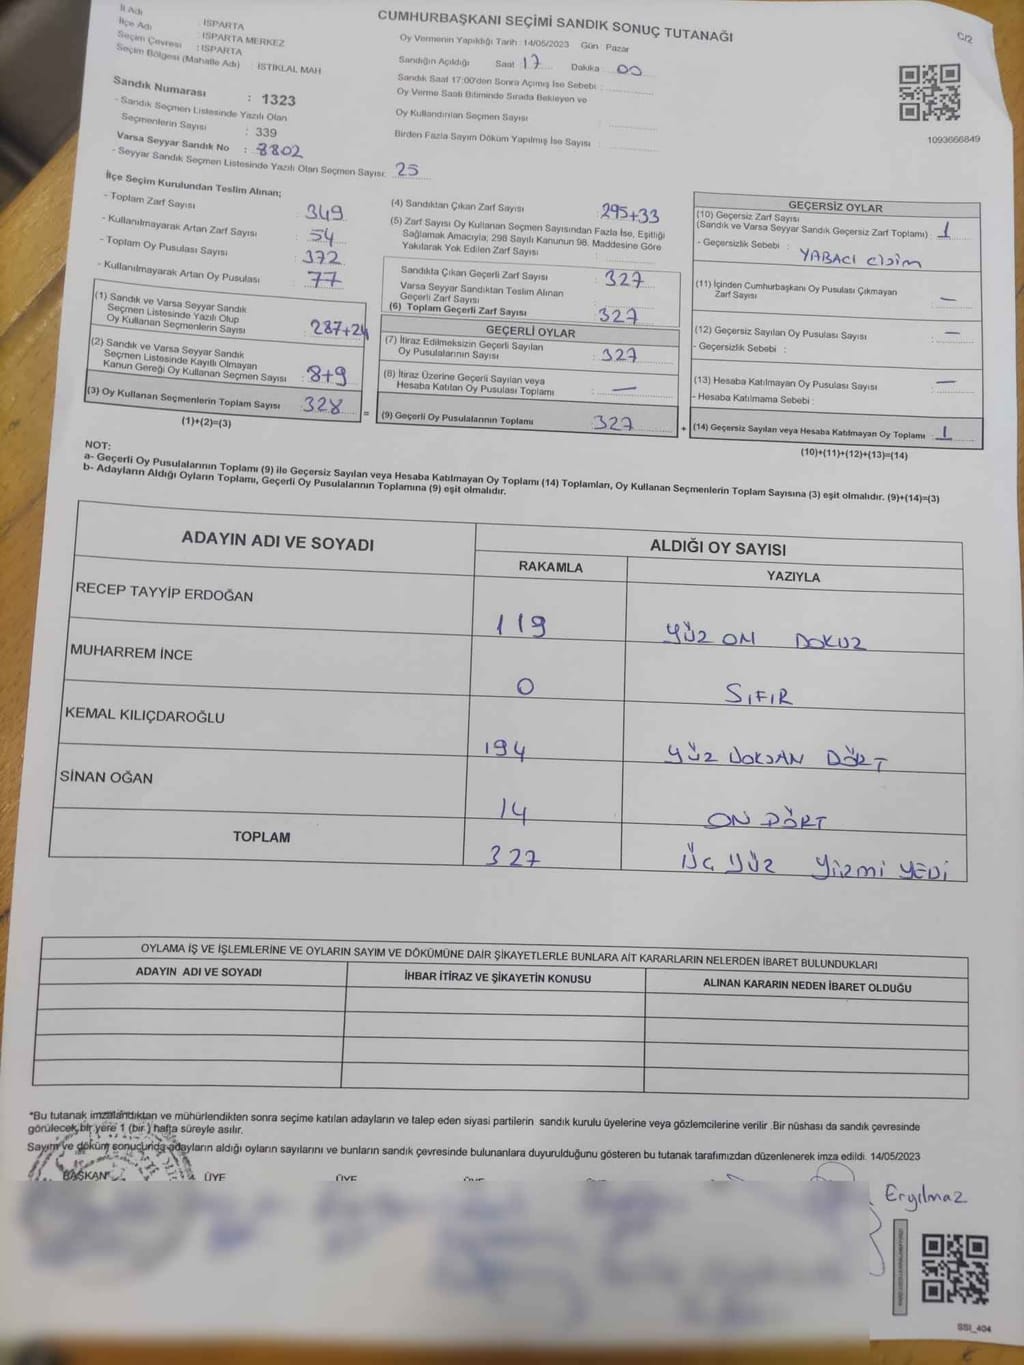 CUMHURBAŞKANI SEÇİMİ SANDIK SONUÇ TUTANAĞI
C/2
İl Adı : ISPARTA
İlçe Adı : ISPARTA MERKEZ
Seçim Çevresi : ISPARTA
Seçim Bölgesi (Mahalle Adı) : İSTİKLAL MAH
Sandık Numarası : 1323
- Sandık Seçmen Listesinde Yazılı Olan
Seçmenlerin Sayısı : 339
Varsa Seyyar Sandık No : 8802
- Seyyar Sandık Seçmen Listesinde Yazılı Olan Seçmen Sayısı: 25
Oy Vermenin Yapıldığı Tarih :14/05/2023 Gün : Pazar
Sandığın Açıldığı Saat 17 Dakika : 00
Sandık Saat 17:00'den Sonra Açımış İse Sebebi :
Oy Verme Saati Bitiminde Sırada Bekleyen ve
Oy Kullandırılan Seçmen Sayısı :
Birden Fazla Sayım Döküm Yapılmış İse Sayısı :
1093666849
İlçe Seçim Kurulundan Teslim Alınan;
- Toplam Zarf Sayısı : 349
- Kullanılmayarak Artan Zarf Sayısı : 54
- Toplam Oy Pusulası Sayısı : 372
- Kullanılmayarak Artan Oy Pusulası : 77
(1) Sandık ve Varsa Seyyar Sandık
Seçmen Listesinde Yazılı Olup
Oy Kullanan Seçmenlerin Sayısı : 287+24
(2) Sandık ve Varsa Seyyar Sandık
Seçmen Listesinde Kayıtlı Olmayan
Kanun Gereği Oy Kullanan Seçmen Sayısı : 8+9
(3) Oy Kullanan Seçmenlerin Toplam Sayısı : 328 =
(1)+(2)=(3)
(4) Sandıktan Çıkan Zarf Sayısı : 295+33
(5) Zarf Sayısı Oy Kullanan Seçmen Sayısından Fazla İse, Eşitliği
Sağlamak Amacıyla; 298 Sayılı Kanunun 98. Maddesine Göre
Yakılarak Yok Edilen Zarf Sayısı :
Sandıkta Çıkan Geçerli Zarf Sayısı : 327
Varsa Seyyar Sandıktan Teslim Alınan
Geçerli Zarf Sayısı :
(6) Toplam Geçerli Zarf Sayısı : 327
GEÇERLİ OYLAR
(7) İtiraz Edilmeksizin Geçerli Sayılan
Oy Pusulalarının Sayısı : 327
(8) İtiraz Üzerine Geçerli Sayılan veya
Hesaba Katılan Oy Pusulası Toplamı : —
(9) Geçerli Oy Pusulalarının Toplamı : 327 +
GEÇERSİZ OYLAR
(10) Geçersiz Zarf Sayısı
(Sandık ve Varsa Seyyar Sandık Geçersiz Zarf Toplamı) : 1
- Geçersizlik Sebebi : YABACI CİSİM
(11) İçinden Cumhurbaşkanı Oy Pusulası Çıkmayan
Zarf Sayısı : —
(12) Geçersiz Sayılan Oy Pusulası Sayısı : —
- Geçersizlik Sebebi :
(13) Hesaba Katılmayan Oy Pusulası Sayısı : —
- Hesaba Katılmama Sebebi :
(14) Geçersiz Sayılan veya Hesaba Katılmayan Oy Toplamı : 1
(10)+(11)+(12)+(13)=(14)
NOT:
a- Geçerli Oy Pusulalarının Toplamı (9) ile Geçersiz Sayılan veya Hesaba Katılmayan Oy Toplamı (14) Toplamları, Oy Kullanan Seçmenlerin Toplam Sayısına (3) eşit olmalıdır. (9)+(14)=(3)
b- Adayların Aldığı Oyların Toplamı, Geçerli Oy Pusulalarının Toplamına (9) eşit olmalıdır.
ADAYIN ADI VE SOYADI ALDIĞI OY SAYISI
RAKAMLA YAZIYLA
RECEP TAYYİP ERDOĞAN 119 YÜZ ON DOKUZ
MUHARREM İNCE 0 SIFIR
KEMAL KILIÇDAROĞLU 194 YÜZ DOKSAN DÖRT
SİNAN OĞAN 14 ON DÖRT
TOPLAM 327 ÜÇ YÜZ YİRMİ YEDİ
OYLAMA İŞ VE İŞLEMLERİNE VE OYLARIN SAYIM VE DÖKÜMÜNE DAİR ŞİKAYETLERLE BUNLARA AİT KARARLARIN NELERDEN İBARET BULUNDUKLARI
ADAYIN ADI VE SOYADI İHBAR İTİRAZ VE ŞİKAYETİN KONUSU ALINAN KARARIN NEDEN İBARET OLDUĞU
*Bu tutanak imzalandıktan ve mühürlendikten sonra seçime katılan adayların ve talep eden siyasi partilerin sandık kurulu üyelerine veya gözlemcilerine verilir .Bir nüshası da sandık çevresinde
görülecek bir yere 1 (bir ) hafta süreyle asılır.
Sayım ve döküm sonucunda adayların aldığı oyların sayılarını ve bunların sandık çevresinde bulunanlara duyurulduğunu gösteren bu tutanak tarafımızdan düzenlenerek imza edildi. 14/05/2023
BAŞKAN ÜYE ÜYE ÜYE
Eryılmaz
SSI_404